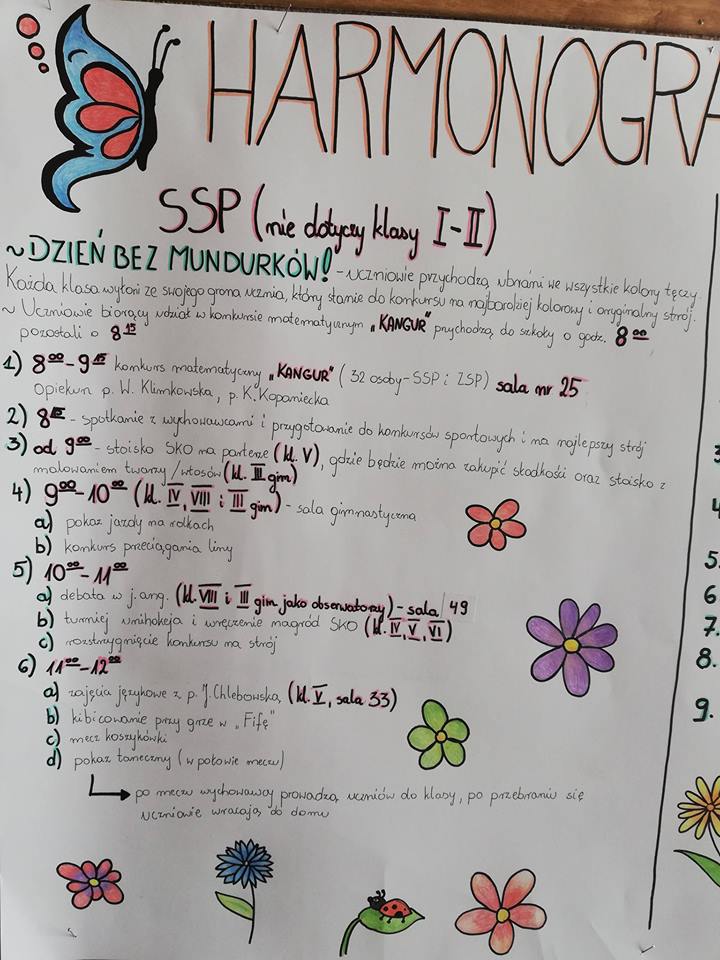 HARMONOGRA
SSP (nie dotyczy klasy I-II)
~DZIEŃ BEZ MUNDURKÓW! - uczniowie przychodzą ubrani we wszystkie kolory tęczy.
Każda klasa wyłoni ze swojego grona ucznia, który stanie do konkursu na najbardziej kolorowy i oryginalny strój.
~ Uczniowie biorący udział w konkursie matematycznym „KANGUR" przychodzą do szkoły o godz. 8⁰⁰
pozostali o 8¹⁵
1) 8⁰⁰-9¹⁵ konkurs matematyczny „KANGUR" (32 osoby-SSP i ZSP) sala nr 25
Opiekun p. W. Klimkowska, p. K. Kopaniecka
2) 8¹⁵ - spotkanie z wychowawcami i przygotowanie do konkursów sportowych i na najlepszy strój
3) od 9⁰⁰ - stoisko SKO na parterze (kl. V), gdzie będzie można zakupić słodkości oraz stoisko z
malowaniem twarzy/włosów (kl. III gim)
4) 9⁰⁰-10⁰⁰ (kl. IV, VIII i III gim) - sala gimnastyczna
a) pokaz jazdy na rolkach
b) konkurs przeciągania liny
5) 10⁰⁰-11⁰⁰
a) debata w j. ang. (kl. VIII i III gim jako obserwatorzy) - sala 49
b) turniej unihokeja i wręczenie nagród SKO (kl. IV, V, VI)
c) rozstrzygnięcie konkursu na strój
6) 11⁰⁰-12⁰⁰
a) zajęcia językowe z p. J. Chlebowską (kl. V, sala 33)
b) kibicowanie przy grze w „Fifę"
c) mecz koszykówki
d) pokaz taneczny (w połowie meczu)
po meczu wychowawcy prowadzą uczniów do klasy, po przebraniu się
uczniowie wracają do domu
3
4
5.
6
7.
8.
9.